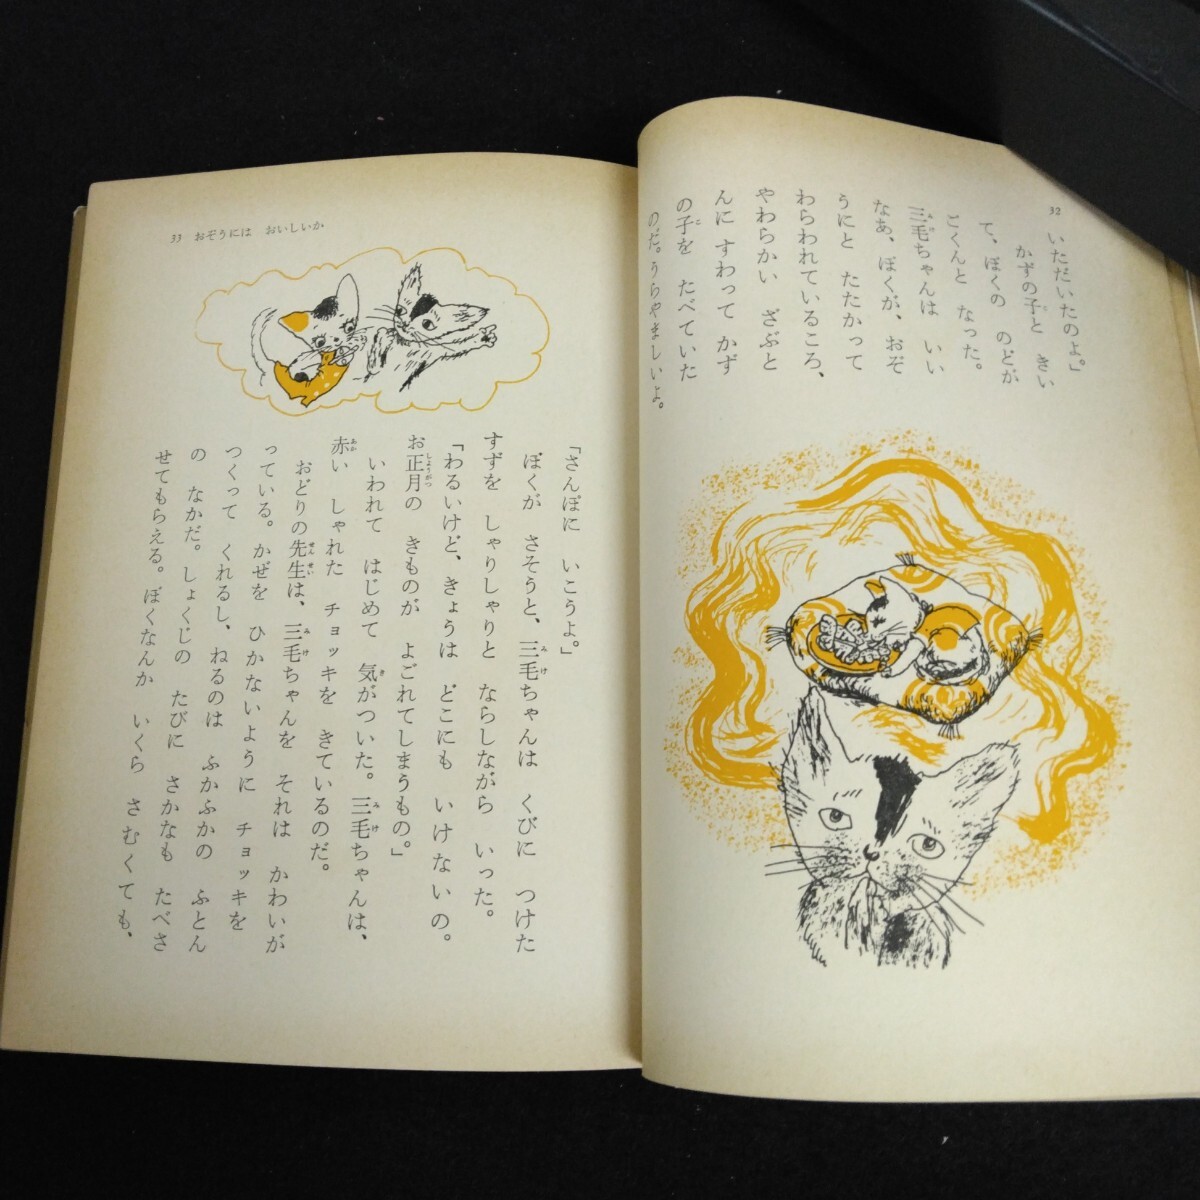 32
いただいたのよ。」
かずの子と きい
て、ぼくの のどが
ごくんと なった。
三毛ちゃんは いい
なあ、ぼくが、おぞ
うにと たたかって
わらわれているころ、
やわらかい ざぶと
んに すわって かず
の子を たべていた
のだ。うらやましいよ。
33 おぞうには おいしいか
「さんぽに いこうよ。」
ぼくが さそうと、三毛ちゃんは くびに つけた
すずを しゃりしゃりと ならしながら いった。
「わるいけど、きょうは どこにも いけないの。
お正月の きものが よごれてしまうもの。」
いわれて はじめて 気がついた。三毛ちゃんは、
赤い しゃれた チョッキを きているのだ。
おどりの先生は、三毛ちゃんを それは かわいが
っている。かぜを ひかないように チョッキを
つくって くれるし、ねるのは ふかふかの ふとん
の なかだ。しょくじの たびに さかなも たべさ
せてもらえる。ぼくなんか いくら さむくても、